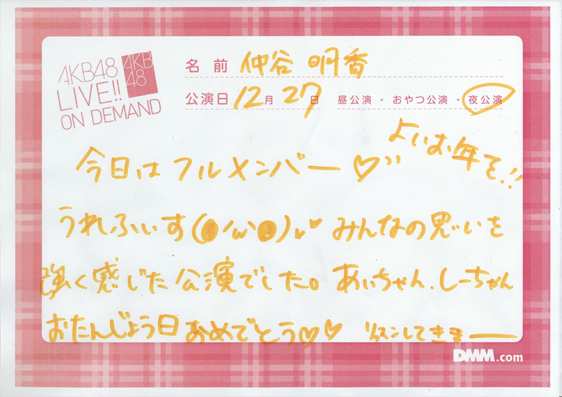 AKB48
LIVE!!
ON DEMAND
AKB
48
名前 仲谷 明香
公演日 12月27日 昼公演・おやつ公演・夜公演
よいお年を!!
今日はフルメンバー♡
うれふぃす(●'ω●)、♥ みんなの思いを
強く感じた公演でした。あぃちゃん、しーちゃん
おたんじょう日おめでとう♡♡
してきまー
DMM.com